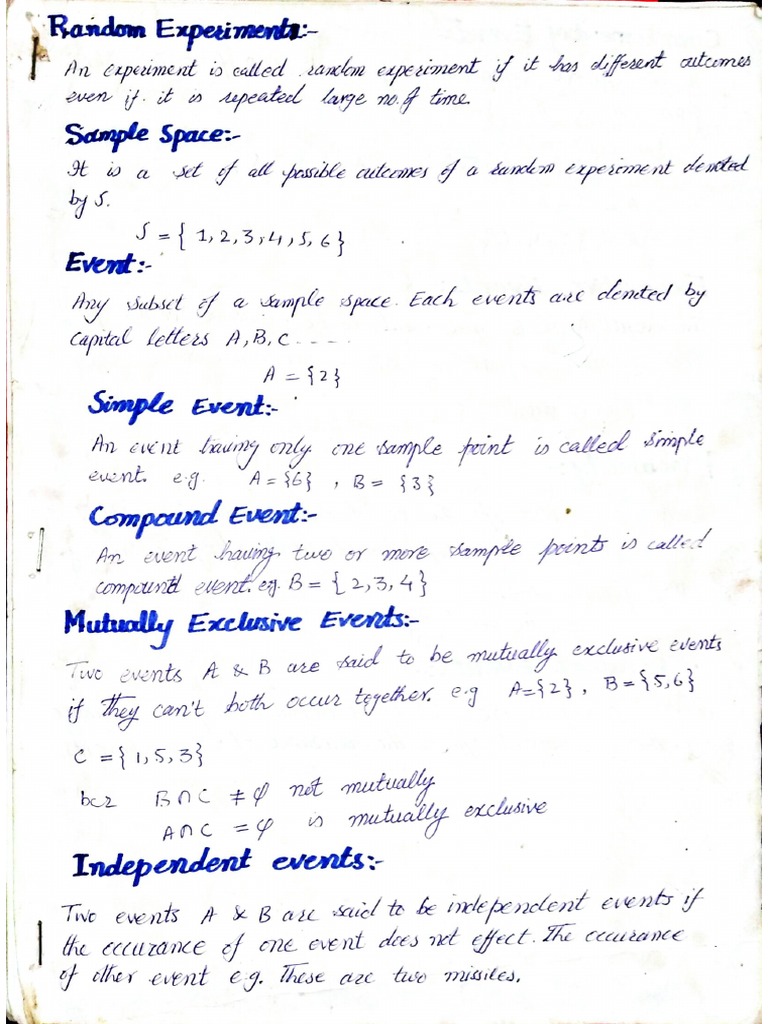 Random Experiments:-
An experiment is called random experiment if it has different outcomes
even if it is repeated large no. of time.
Sample Space:-
It is a set of all possible outcomes of a random experiment denoted
by S.
S = { 1, 2, 3, 4, 5, 6 }
Event:-
Any subset of a sample space. Each events are denoted by
capital letters A, B, C - - - -
A = {2}
Simple Event:-
An event having only one sample point is called simple
event. e.g. A = {6} , B = {3}
Compound Event:-
An event having two or more sample points is called
compound event. eg. B = { 2, 3, 4 }
Mutually Exclusive Events:-
Two events A & B are said to be mutually exclusive events
if they can't both occur together. e.g A={2} , B={5,6}
C = { 1, 5, 3 }
bcz B∩C ≠ φ not mutually
A∩C = φ is mutually exclusive
Independent events:-
Two events A & B are said to be independent events if
the occurance of one event does not effect. The occurance
of other event e.g. These are two missiles.